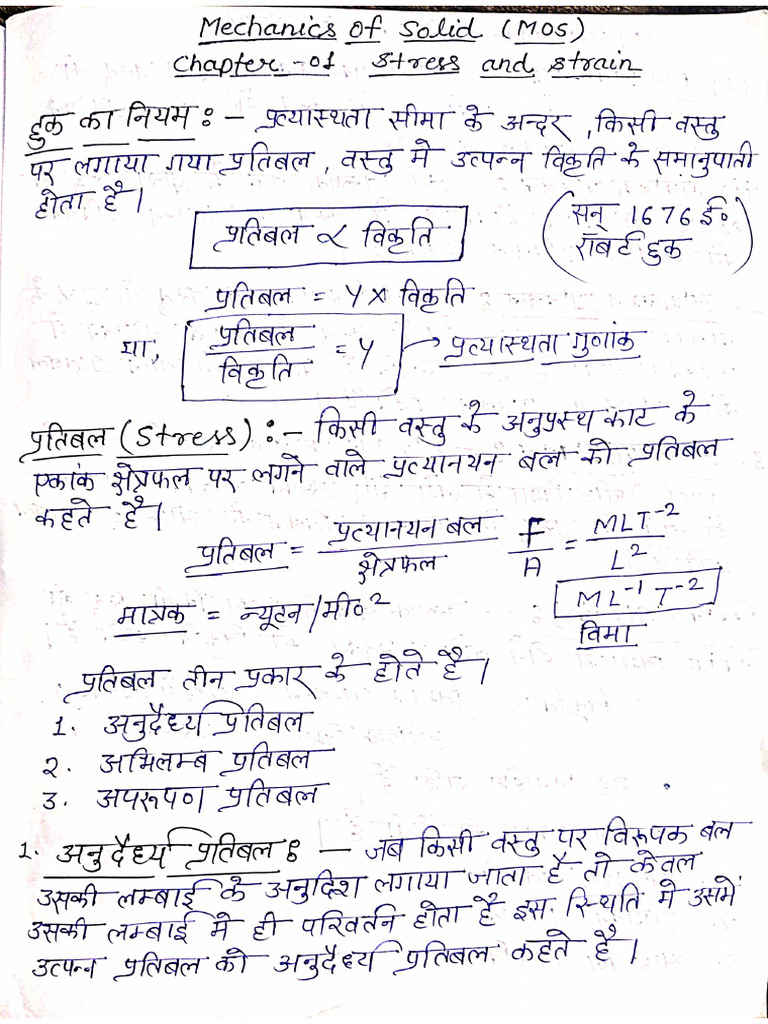 Mechanics of Solid (MOS)
Chapter-01 Stress and Strain
हुक का नियम :- प्रत्यास्थता सीमा के अन्दर, किसी वस्तु
पर लगाया गया प्रतिबल, वस्तु मे उत्पन्न विकृति के समानुपाती
होता है।
प्रतिबल ∝ विकृति
(सन् 1676 ई०
रॉबर्ट हुक)
प्रतिबल = Y × विकृति
या, प्रतिबल / विकृति = Y → प्रत्यास्थता गुणांक
प्रतिबल (Stress) :- किसी वस्तु के अनुप्रस्थ काट के
एकांक क्षेत्रफल पर लगने वाले प्रत्यानयन बल को प्रतिबल
कहते है।
प्रतिबल = प्रत्यानयन बल / क्षेत्रफल F/A = MLT⁻² / L²
मात्रक = न्यूटन/मी०² ML⁻¹T⁻²
विमा
प्रतिबल तीन प्रकार के होते है।
1. अनुदैर्ध्य प्रतिबल
2. अभिलम्ब प्रतिबल
3. अपरूपण प्रतिबल
1. अनुदैर्ध्य प्रतिबल :- जब किसी वस्तु पर विरूपक बल
उसकी लम्बाई के अनुदिश लगाया जाता है तो केवल
उसकी लम्बाई मे ही परिवर्तन होता है इस स्थिति मे उसमें
उत्पन्न प्रतिबल को अनुदैर्ध्य प्रतिबल कहते है।